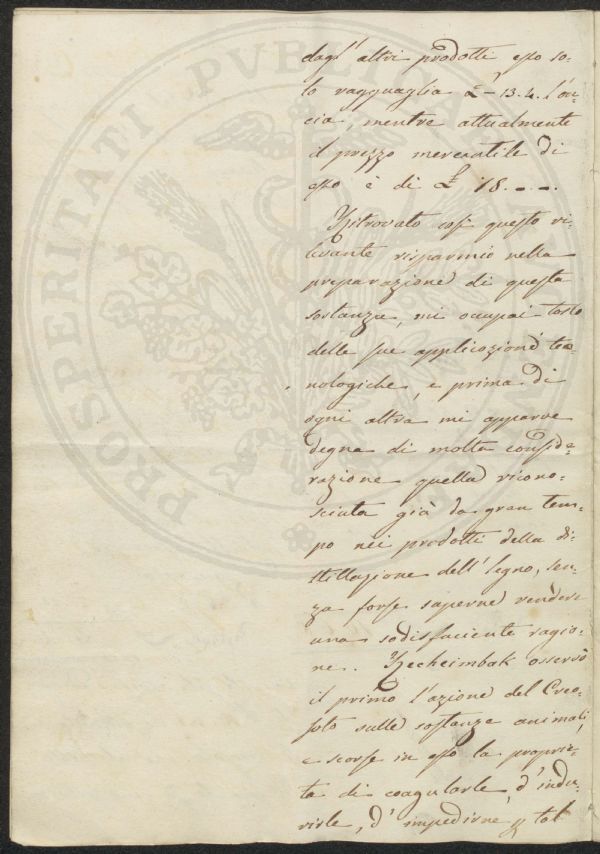 dagl' altri prodotti esso so-
lo ragguaglia £ - 13. 4. l'on-
cia, mentre attualmente
il prezzo mercantile di
esso è di £ 18. - -.
Ritrovato così questo ri-
levante risparmio nella
preparazione di questa
sostanza, mi occupai tosto
delle sue applicazioni tec-
nologiche, e prima di
ogni altra mi apparve
degna di molta conside-
razione quella ricono-
sciuta già da gran tem-
po nei prodotti della di-
stillazione dell' legno, sen-
za forse saperne rendere
una sodisfaciente ragio-
ne. Recheimbak osservò
il primo l'azione del Creo-
soto sulle sostanze animali,
e scorse in esso la proprie-
tà di coagularle, d'indu-
rirle, d'impedirne tal
PROSPERITATI PUBLICAE